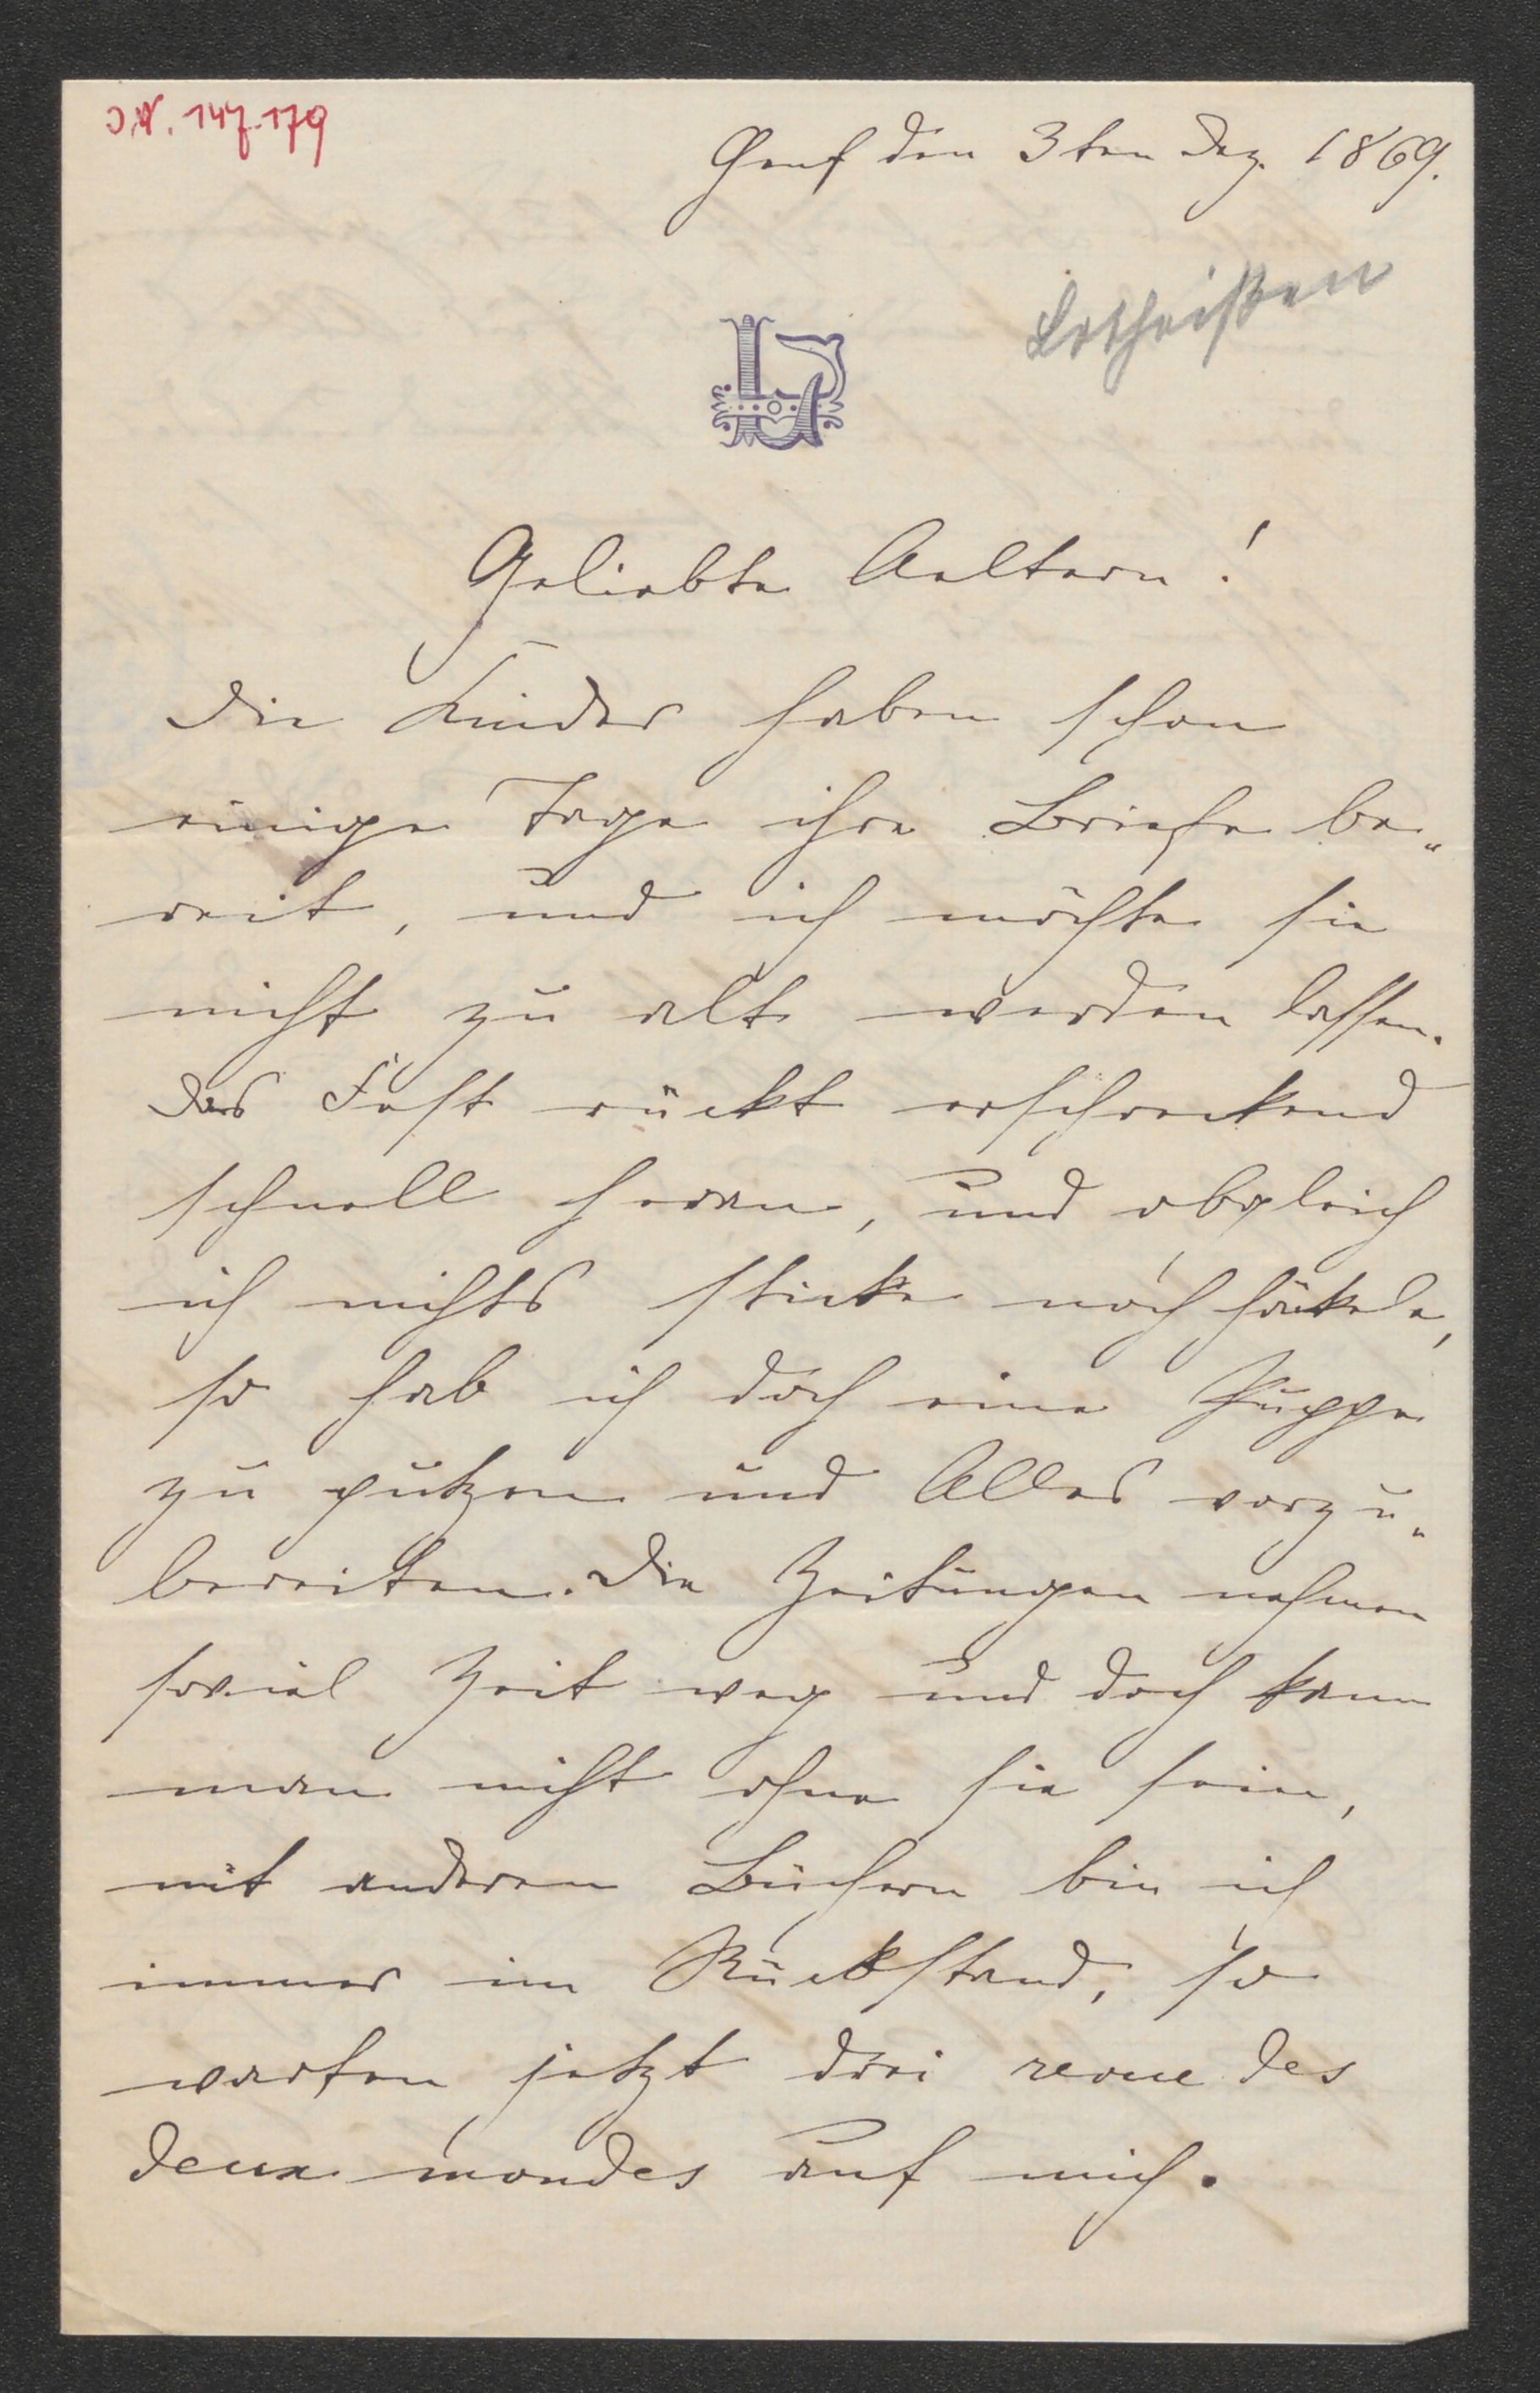 J.N. 147.179
Genf den 3ten Dez. 1869.
Lotheißen
Geliebte Aeltern!
Die Kinder haben schon
einige Tage ihre Briefe be„
reit, und ich möchte sie
nicht zu alt werden lassen.
Das Fest rückt erschreckend
schnell heran, und obgleich
ich nichts sticke noch häkele,
so hab ich doch eine Puppe
zu putzen und Alles vorzu„
bereiten. Die Zeitungen nehmen
soviel Zeit weg und doch kann
man nicht ohne sie sein,
mit anderen Büchern bin ich
immer im Rückstand, so
warten jetzt drei revue des
deux mondes auf mich.